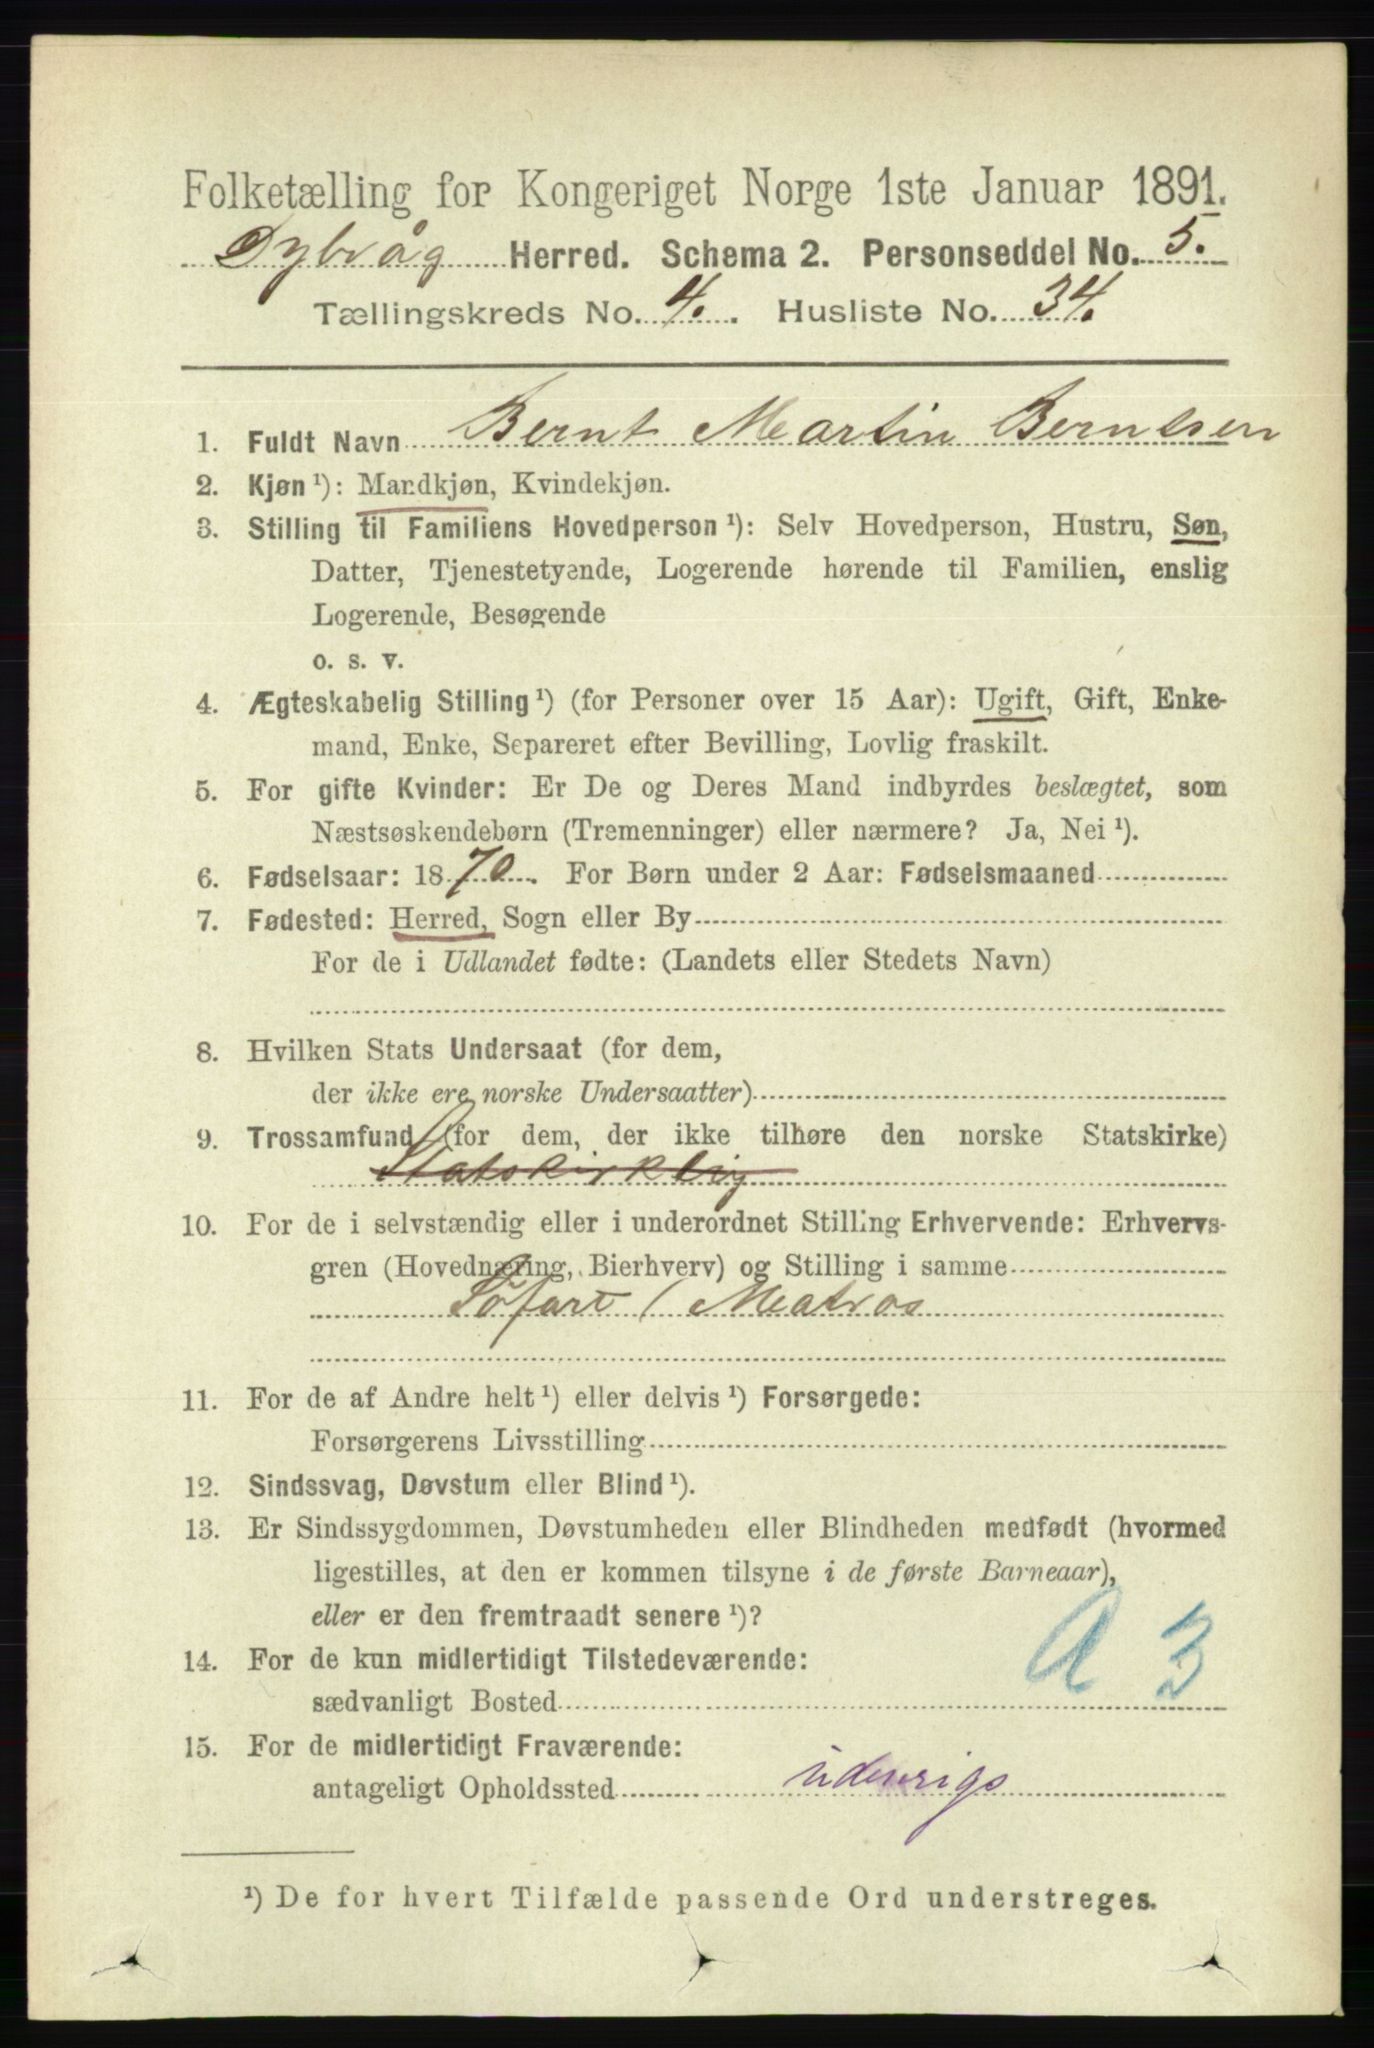 Folketælling for Kongeriget Norge 1ste Januar 1891.
Dybvåg Herred. Schema 2. Personseddel No. 5.
Tællingskreds No. 4. Husliste No. 34.
1. Fuldt Navn Bernt Martin Berntsen
2. Kjøn ¹): Mandkjøn, Kvindekjøn.
3. Stilling til Familiens Hovedperson ¹): Selv Hovedperson, Hustru, Søn,
Datter, Tjenestetyende, Logerende hørende til Familien, enslig
Logerende, Besøgende
o. s. v.
4. Ægteskabelig Stilling ¹) (for Personer over 15 Aar): Ugift, Gift, Enke-
mand, Enke, Separeret efter Bevilling, Lovlig fraskilt.
5. For gifte Kvinder: Er De og Deres Mand indbyrdes beslægtet, som
Næstsøskendebørn (Tremenninger) eller nærmere? Ja, Nei ¹).
6. Fødselsaar: 1870. For Børn under 2 Aar: Fødselsmaaned
7. Fødested: Herred, Sogn eller By
For de i Udlandet fødte: (Landets eller Stedets Navn)
8. Hvilken Stats Undersaat (for dem,
der ikke ere norske Undersaatter)
9. Trossamfund (for dem, der ikke tilhøre den norske Statskirke)
Statskirklig
10. For de i selvstændig eller i underordnet Stilling Erhvervende: Erhvervs-
gren (Hovednæring, Bierhverv) og Stilling i samme
Søfart / Matros
11. For de af Andre helt ¹) eller delvis ¹) Forsørgede:
Forsørgerens Livsstilling
12. Sindssvag, Døvstum eller Blind ¹).
13. Er Sindssygdommen, Døvstumheden eller Blindheden medfødt (hvormed
ligestilles, at den er kommen tilsyne i de første Barneaar),
eller er den fremtraadt senere ¹)?
A 3
14. For de kun midlertidigt Tilstedeværende:
sædvanligt Bosted
15. For de midlertidigt Fraværende:
antageligt Opholdssted udenrigs
¹) De for hvert Tilfælde passende Ord understreges.